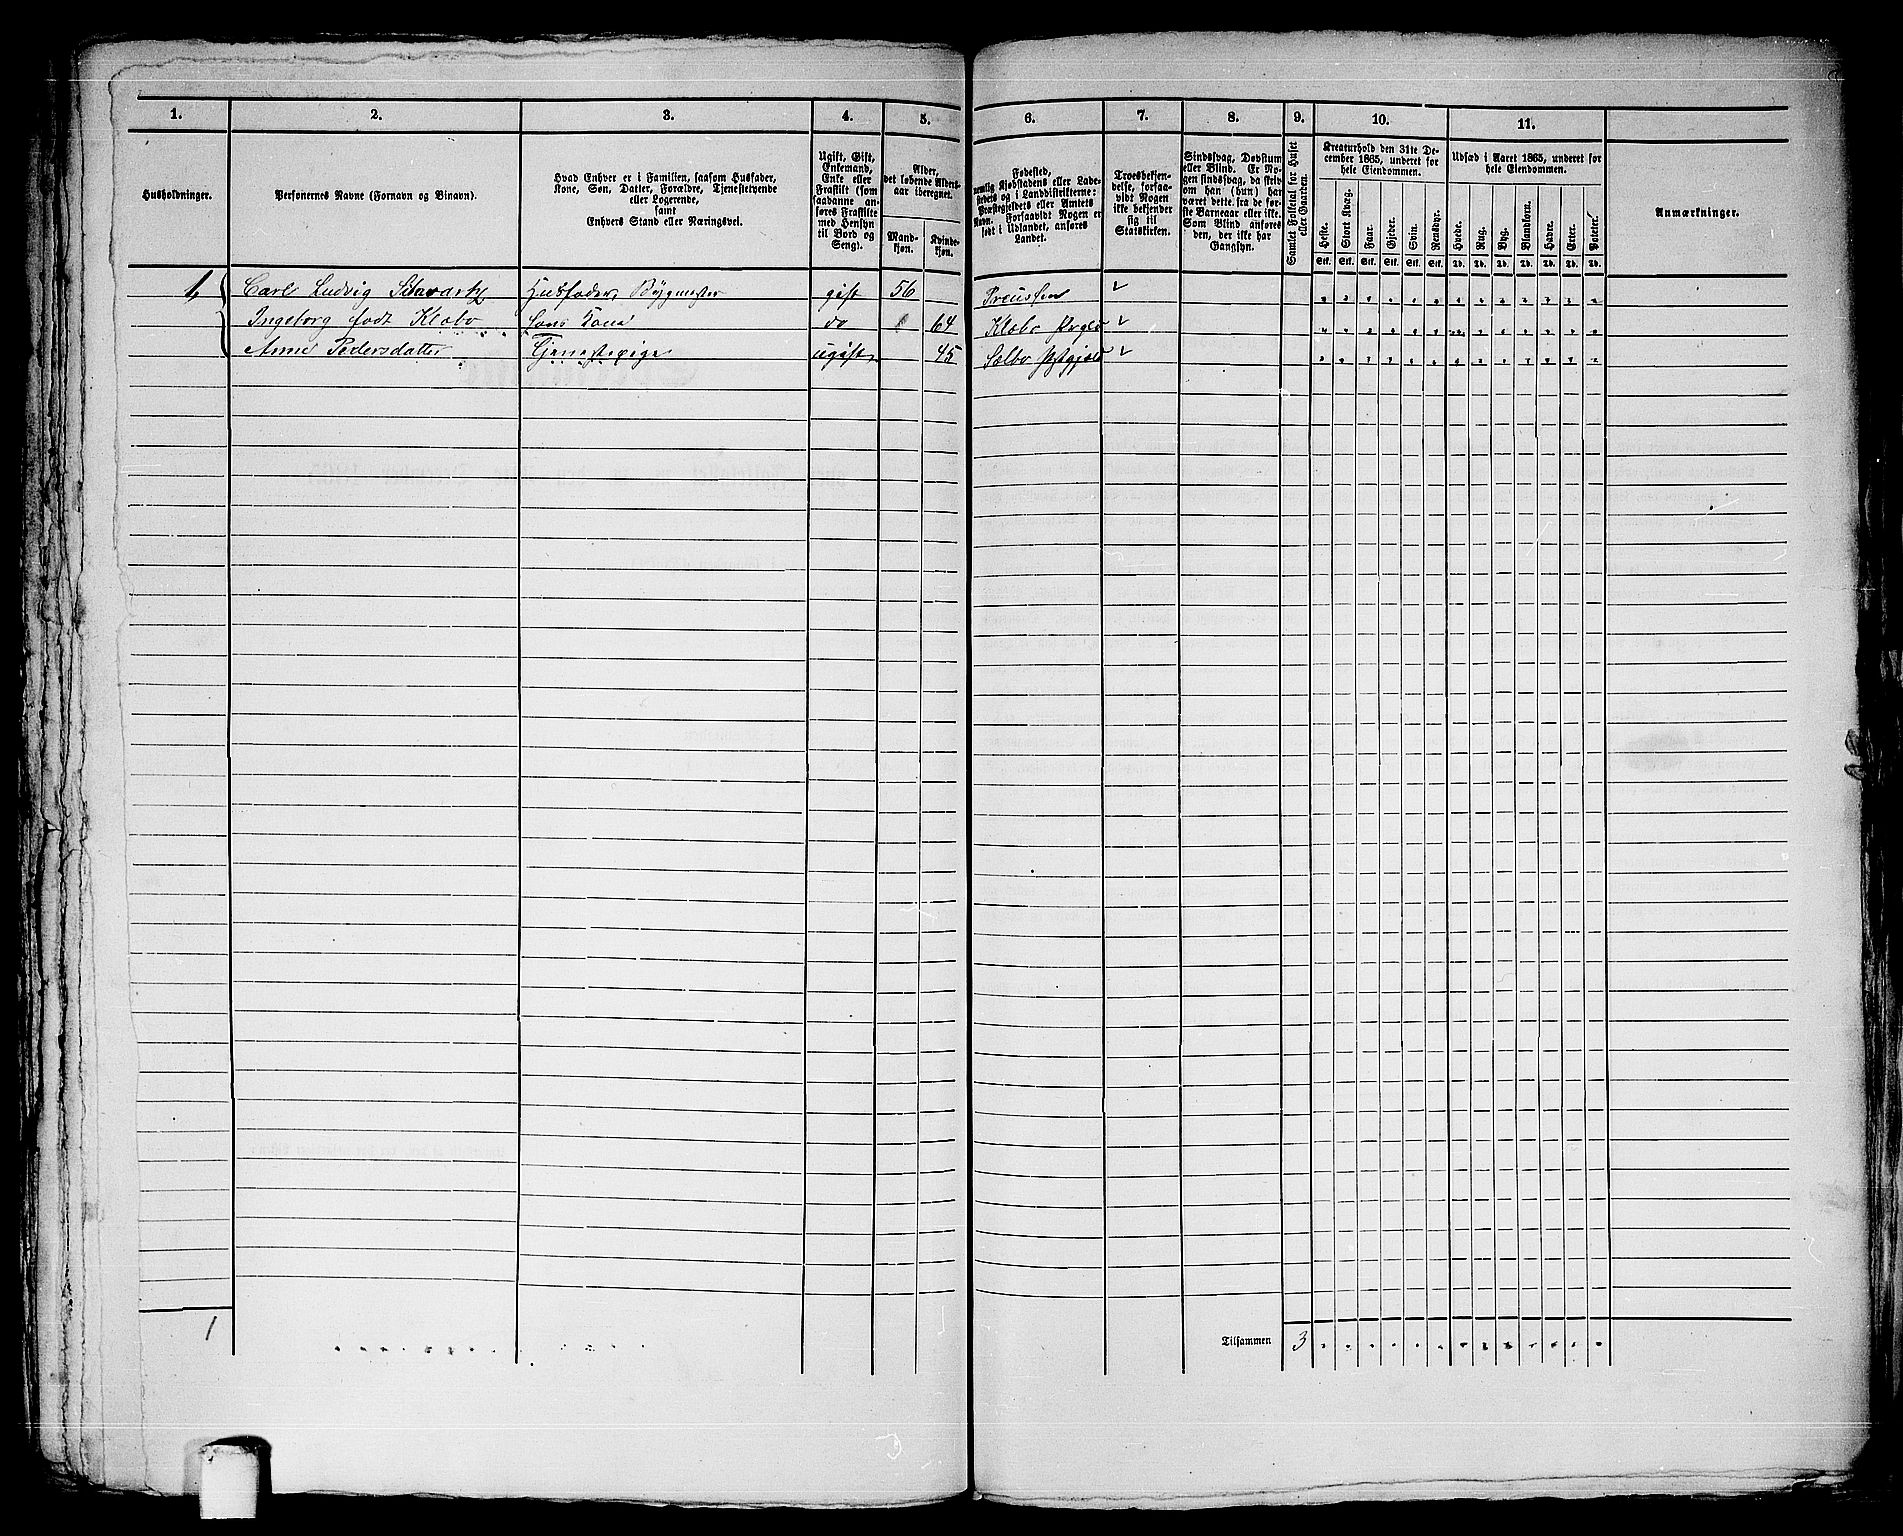 1. 2. 3. 4. 5. 6. 7. 8. 9. 10. 11.
Husholdninger.
Personernes Navne (Fornavn og Binavn).
Hvad Enhver er i Familien, saasom Husfader,
Kone, Søn, Datter, Forældre, Tjenestetyende
eller Logerende,
samt
Enhvers Stand eller Næringsvei.
Ugift, Gift,
Enkemand,
Enke eller
Fraskilt (som
saadanne an-
føres Fraskilte
med Hensyn
til Bord og
Seng).
Alder,
det løbende Alders-
aar iberegnet.
Mand-
kjøn.
Kvinde-
kjøn.
Fødested,
nemlig Kjøbstadens eller Lade-
stedets og i Landdistrikterne:
Præstegjeldets eller Amtets
Navn. Forsaavidt Nogen er
født i Udlandet, anføres
Landet.
Troesbekjen-
delse, forsaa-
vidt Nogen
ikke bekjender
sig til
Statskirken.
Sindssvag, Døvstum
eller Blind. Er No-
gen sindssvag, da skelv
om han (hun) har
været dette fra de før-
ste Barneaar eller ikke.
Som Blind anføres
den, der ikke har
Gangsyn.
Samlet Folketal for Huset
eller Gaarden.
Kreaturhold den 31te De-
cember 1865, underet for
hele Eiendommen.
Heste. Stort Kvæg. Faar. Gjeder. Svin. Rensdyr.
Stk. Stk. Stk. Stk. Stk. Stk.
Udsæd i Aaret 1865, underet for
hele Eiendommen.
Hvede. Rug. Byg. Blandkorn. Havre. Erter. Poteter.
Td. Td. Td. Td. Td. Td. Td.
Anmærkninger.
1, Carl Ludvig Husfader, Bygmester gift 56 Preussen
Ingeborg født Klæbo Hans Kone do 64 Klæbo Prgld
Anne Pedersdatter Tjenestepige ugift 45 Sælbo
1
Tilsammen 3